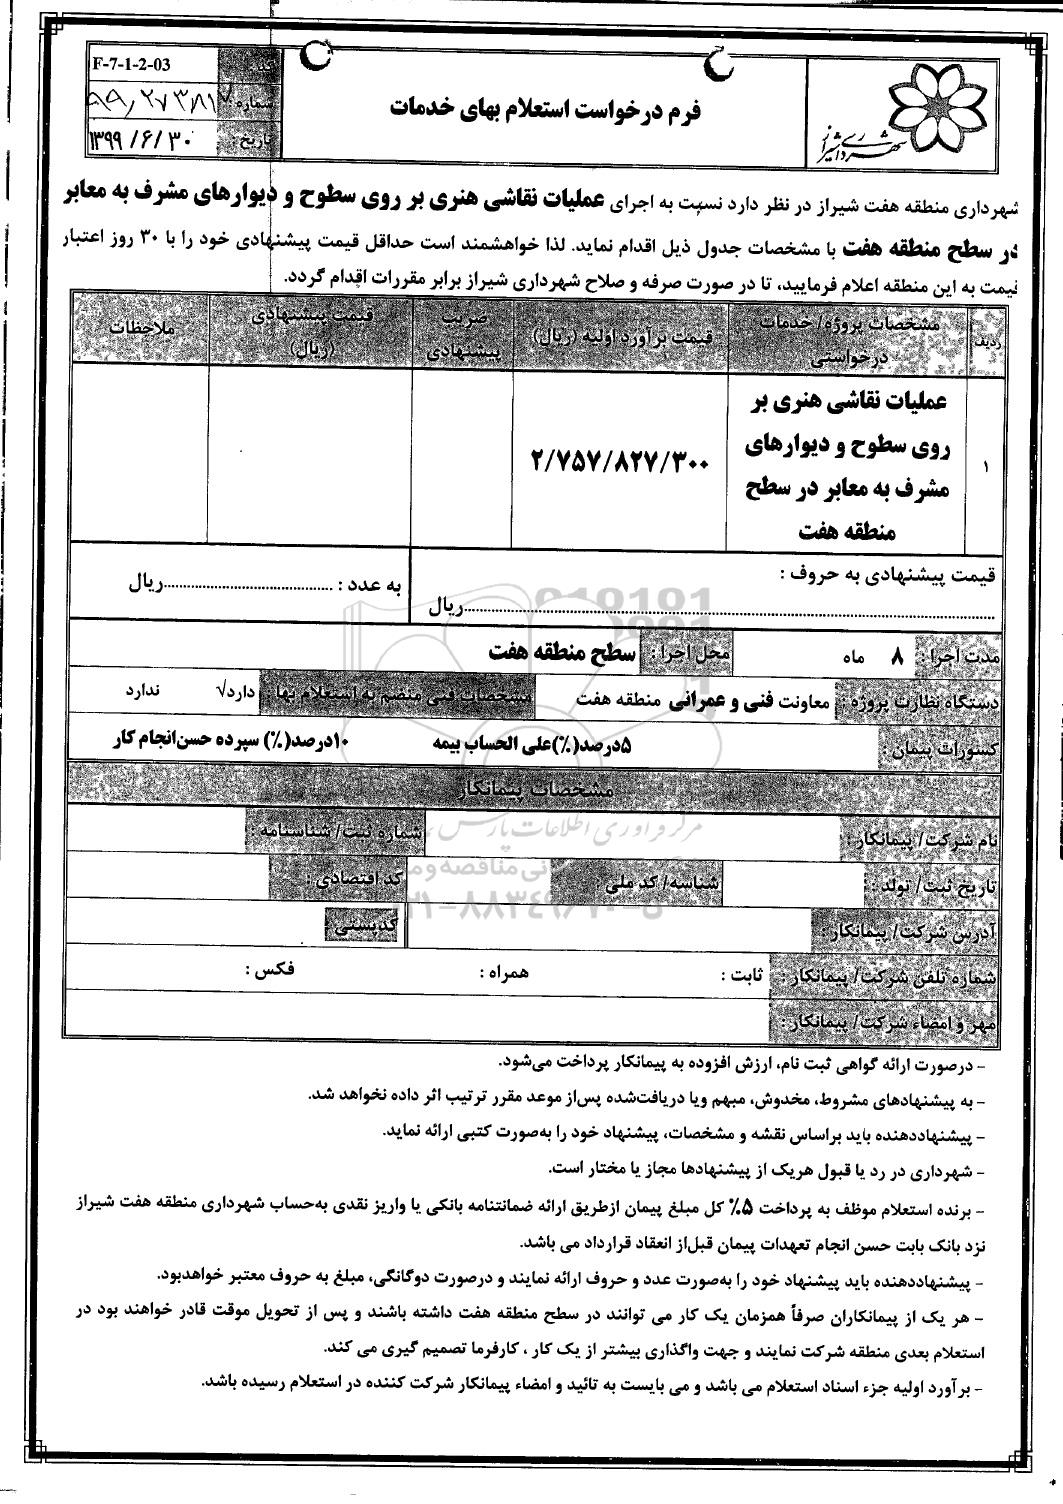 شهرداری شیراز
فرم درخواست استعلام بهای خدمات
کد :
F-7-1-2-03
شماره :
تاریخ :
۱۳۹۹/۶/۳۰
شهرداری منطقه هفت شیراز در نظر دارد نسبت به اجرای عملیات نقاشی هنری بر روی سطوح و دیوارهای مشرف به معابر
در سطح منطقه هفت با مشخصات جدول ذیل اقدام نماید. لذا خواهشمند است حداقل قیمت پیشنهادی خود را با ۳۰ روز اعتبار
قیمت به این منطقه اعلام فرمایید، تا در صورت صرفه و صلاح شهرداری شیراز برابر مقررات اقدام گردد.
ردیف
مشخصات پروژه/ خدمات
درخواستی
قیمت برآورد اولیه (ریال)
ضریب
پیشنهادی
قیمت پیشنهادی
(ریال)
ملاحظات
۱
عملیات نقاشی هنری بر
روی سطوح و دیوارهای
مشرف به معابر در سطح
منطقه هفت
۲/۷۵۷/۸۲۷/۳۰۰
قیمت پیشنهادی به حروف :
..........ریال
به عدد : ..........ریال
مدت اجرا : ۸ ماه
محل اجرا : سطح منطقه هفت
دستگاه نظارت پروژه : معاونت فنی و عمرانی منطقه هفت
مشخصات فنی منضم به استعلام بها : دارد√ ندارد
کسورات پیمان : ۵درصد(٪)علی الحساب بیمه ۱۰درصد(٪) سپرده حسن‌انجام کار
مشخصات پیمانکار
نام شرکت/ پیمانکار : شماره ثبت/ شناسنامه :
تاریخ ثبت/ تولد : شناسه/ کد ملی : کد اقتصادی :
آدرس شرکت/ پیمانکار : کدپستی :
شماره تلفن شرکت/ پیمانکار : ثابت : همراه : فکس :
مهر و امضاء شرکت/ پیمانکار :
- درصورت ارائه گواهی ثبت نام، ارزش افزوده به پیمانکار پرداخت می‌شود.
- به پیشنهادهای مشروط، مخدوش، مبهم ویا دریافت‌شده پس‌از موعد مقرر ترتیب اثر داده نخواهد شد.
- پیشنهاددهنده باید براساس نقشه و مشخصات، پیشنهاد خود را به‌صورت کتبی ارائه نماید.
- شهرداری در رد یا قبول هریک از پیشنهادها مجاز یا مختار است.
- برنده استعلام موظف به پرداخت ۵٪ کل مبلغ پیمان ازطریق ارائه ضمانتنامه بانکی یا واریز نقدی به‌حساب شهرداری منطقه هفت شیراز
نزد بانک بابت حسن انجام تعهدات پیمان قبل‌از انعقاد قرارداد می باشد.
- پیشنهاددهنده باید پیشنهاد خود را به‌صورت عدد و حروف ارائه نمایند و درصورت دوگانگی، مبلغ به حروف معتبر خواهدبود.
- هر یک از پیمانکاران صرفاً همزمان یک کار می توانند در سطح منطقه هفت داشته باشند و پس از تحویل موقت قادر خواهند بود در
استعلام بعدی منطقه شرکت نمایند و جهت واگذاری بیشتر از یک کار ، کارفرما تصمیم گیری می کند.
- برآورد اولیه جزء اسناد استعلام می باشد و می بایست به تائید و امضاء پیمانکار شرکت کننده در استعلام رسیده باشد.